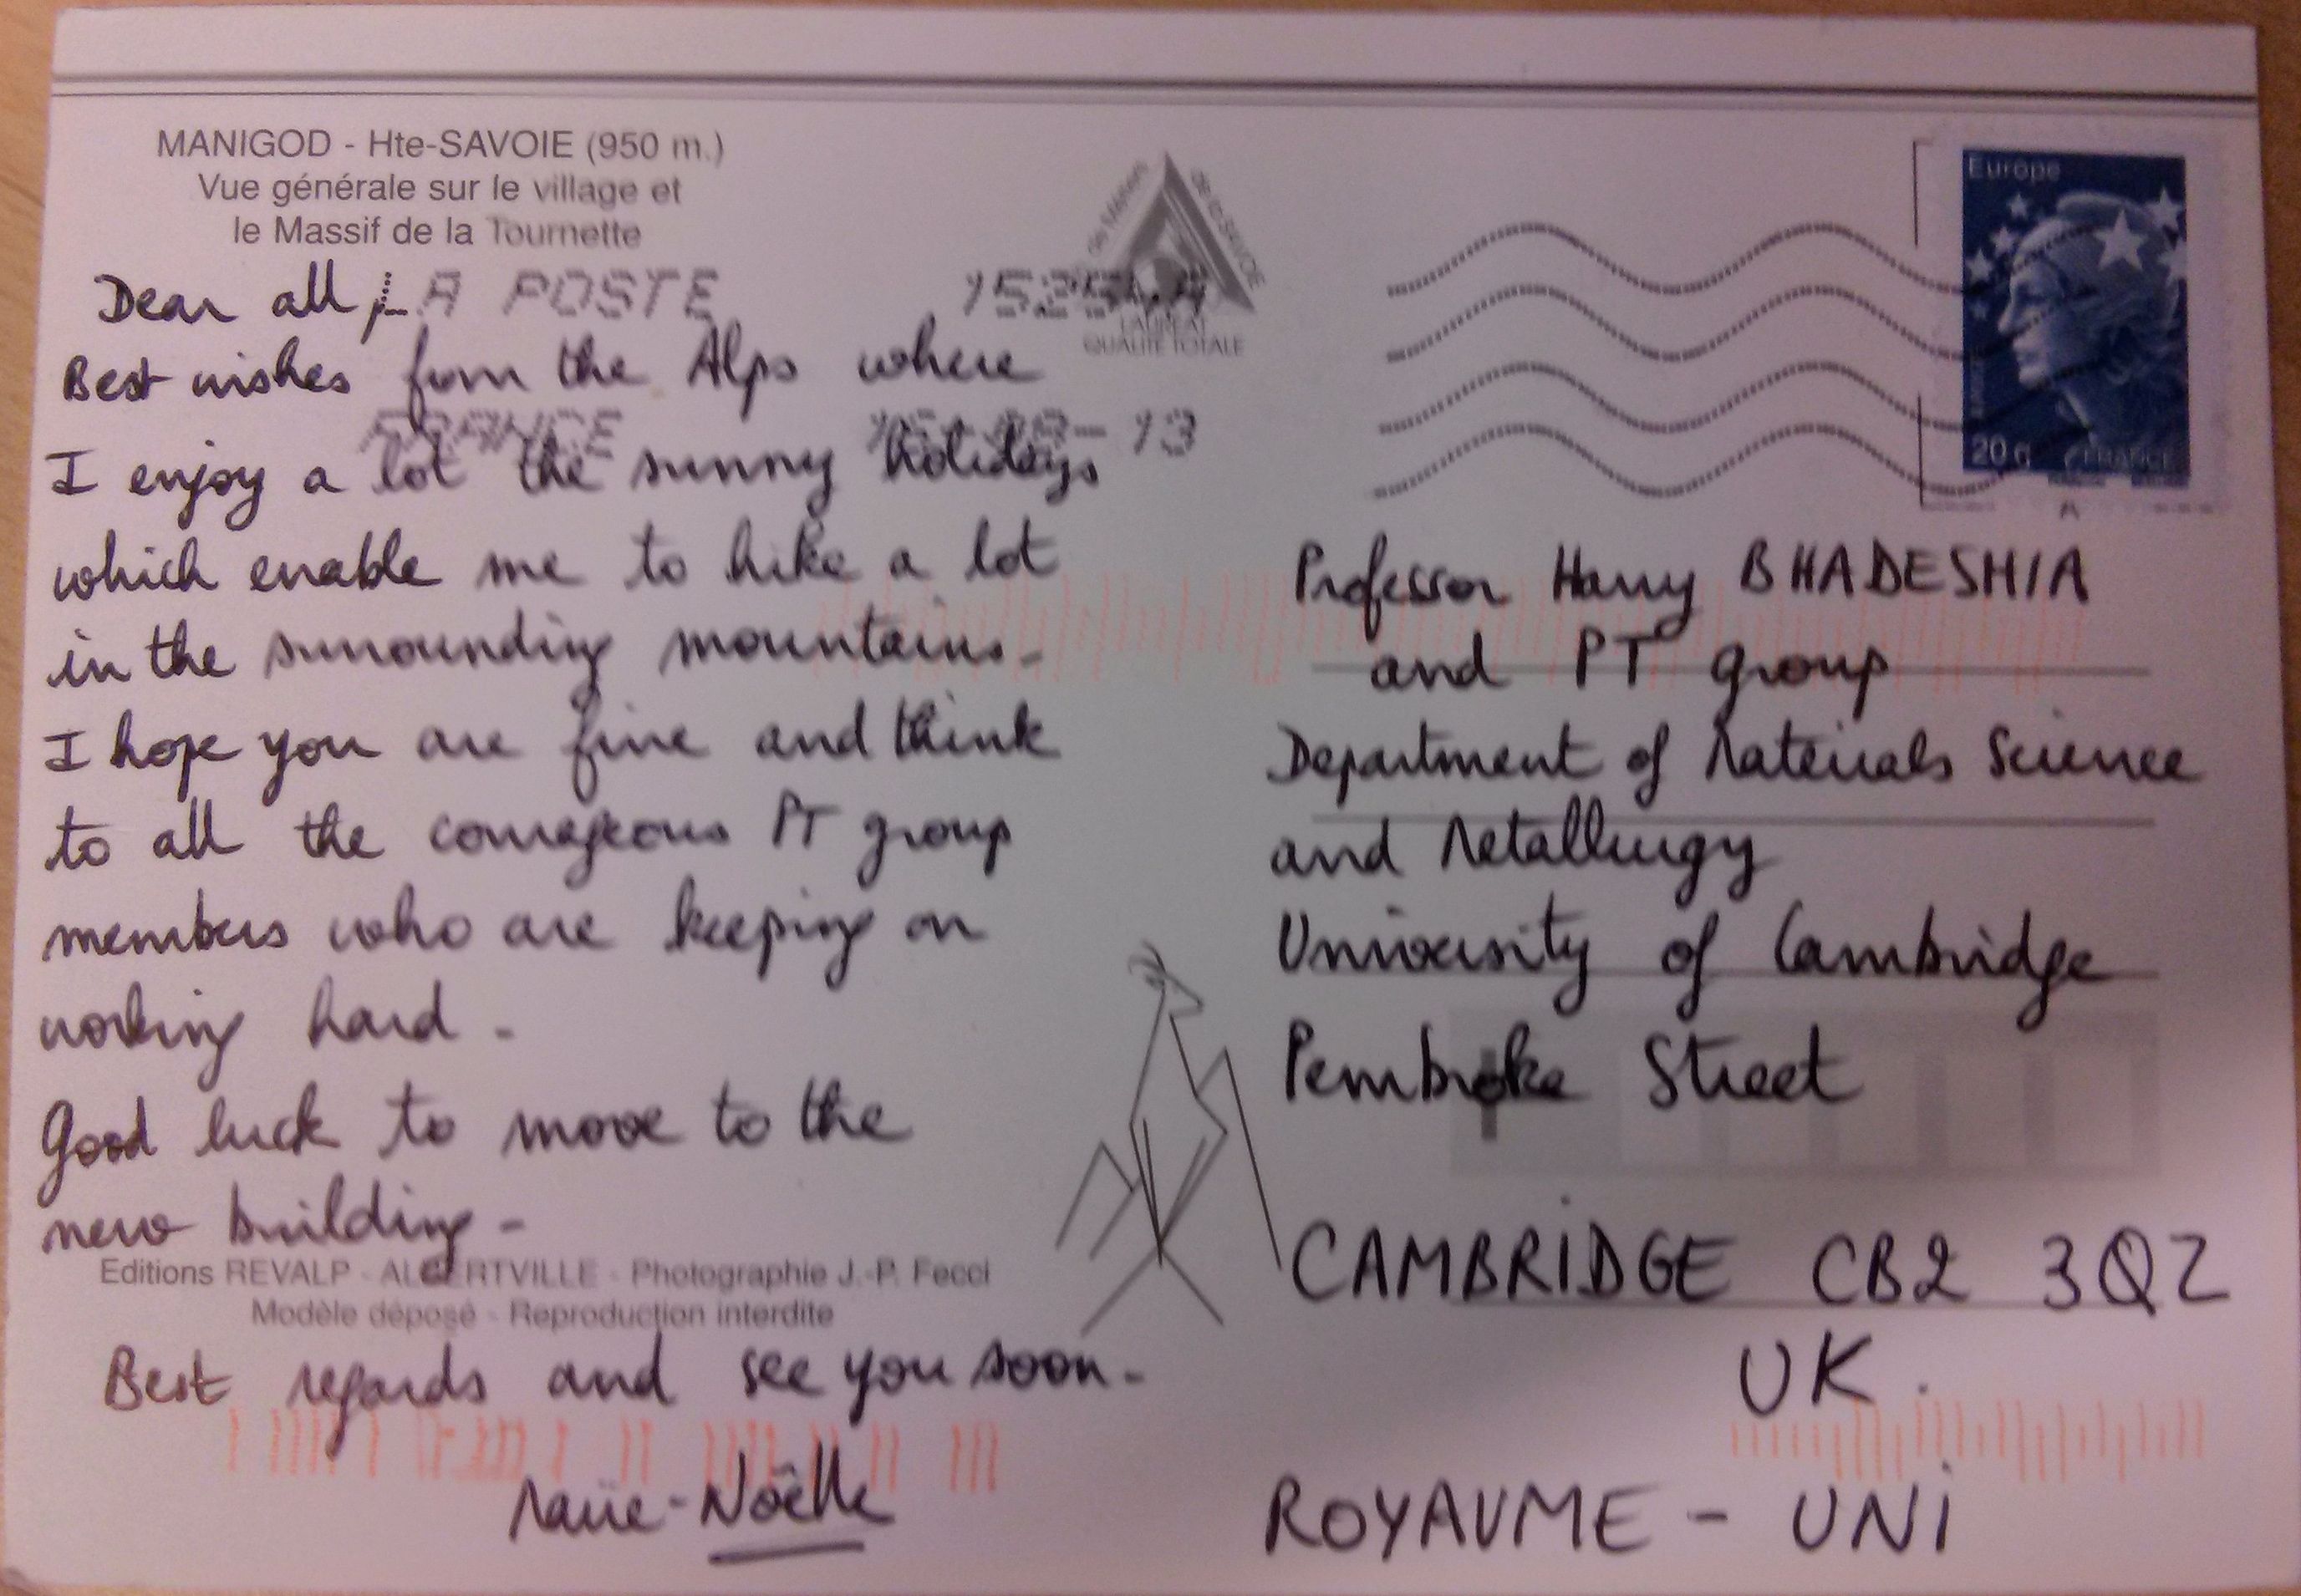 MANIGOD - Hte-SAVOIE (950 m.)
Vue générale sur le village et
le Massif de la Tournette
Dear all,
Best wishes from the Alps where
I enjoy a lot the sunny holidays
which enable me to hike a lot
in the surrounding mountains.
I hope you are fine and think
to all the courageous PT group
members who are keeping on
working hard.
Good luck to move to the
new building.
Editions REVALP - ALBERTVILLE - Photographie J.-P. Fecci
Modèle déposé - Reproduction interdite
Best regards and see you soon.
Marie-Noëlle
LA POSTE
FRANCE
- 13
de Métiers de la SAVOIE
LAURÉAT
QUALITÉ TOTALE
Europe
20 g FRANCE
Professor Harry BHADESHIA
and PT group
Department of Materials Science
and Metallurgy
University of Cambridge
Pembroke Street
CAMBRIDGE CB2 3QZ
UK.
ROYAUME - UNI